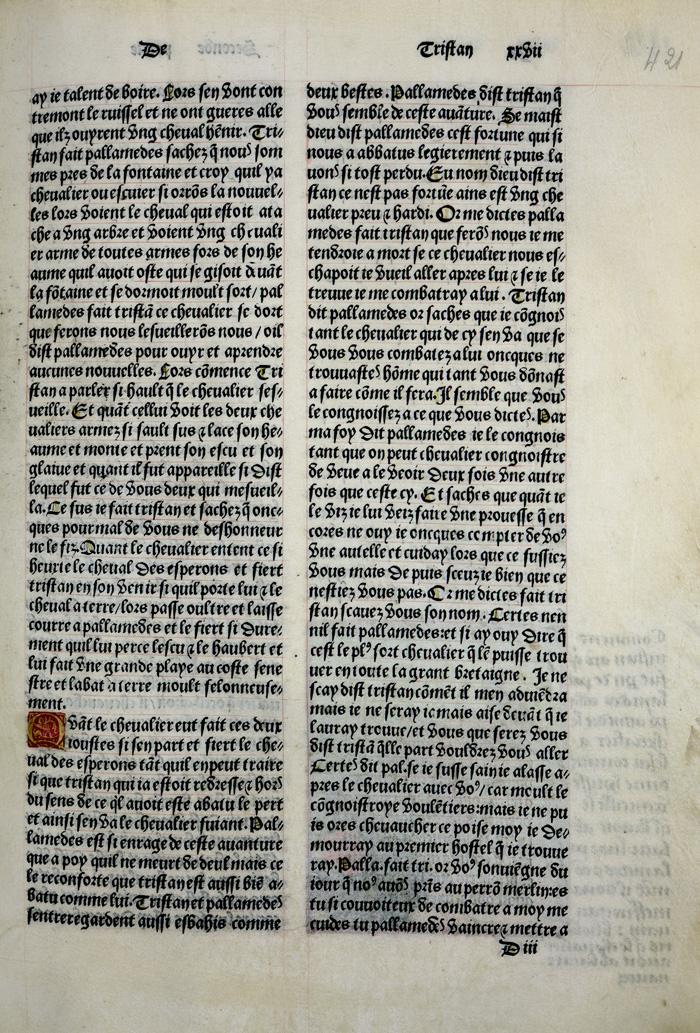 De
Tristan xxvii
421
ay ie talent de boire. Lors sen vont con
tremont le ruissel et ne ont gueres alle
que ilz ouyrent vng cheval hēnir. Tri⸗
stan fait pallamedes sachez q̄ nouˢ som
mes pres de la fontaine et croy quil ya
chevalier ou escuier si orrōs la nouuel⸗
les lors voient le cheval qui estoit ata
che a vng arbre et voient vng chevali
er arme de toutes armes fors de son he
aume quil auoit oste qui se gisoit deuāt
la fōtaine et se dormoit moult fort/ pal
lamedes fait tristā ce chevalier se dort
que ferons nous lesueillerōs nous / oil
dist pallamedes pour ouyr et aprendre
aucunes nouuelles. Lors cōmence Tri
stan a parler si hault q̄ le chevalier ses⸗
ueille. Et quāt cellui voit les deux che
ualiers armez si sault sus ⁊ lace son he⸗
aume et monte et prent son escu et son
glaiue et quant il fut appareille si dist
lequel fut ce de vous deux qui mesueil⸗
la. Ce fus ie fait tristan et sachez q̄ onc⸗
ques pour mal de vous ne deshonneur
ne le fiz. Quant le chevalier entent ce si
heurte le cheval des esperons et fiert
tristan en son venir si quil porte lui ⁊ le
cheval a terre/lors passe oultre et laisse
courre a pallamedes et le fiert si dure⸗
ment quil lui perce lescu ⁊ le haubert et
lui fait vne grande playe au coste sene
stre et labat a terre moult felonneuse⸗
ment.
Quāt le chevalier eut fait ces deux
ioustes si sen part et fiert le che⸗
ual des esperons tāt quil en peut traire
si que tristan qui ia estoit redresse ⁊ horˢ
du sens de ce q̄l auoit este abatu le pert
et ainsi sen va le chevalier fuiant. Pal⸗
lamedes est si enrage de ceste auanture
que a poy quil ne meurt de deul mais ce
le reconforte que tristan est aussi biē a⸗
batu comme lui. Tristan et pallamedeˢ
sentreregardent aussi esbahis comme
deux bestes. Pallamedes dist tristan q̄
vouˢ semble de ceste auāture. Se maist
dieu dist pallamedes cest fortune qui si
nous a abbatus legierement ⁊ puis la
uonˢ si tost perdu. Eu nom dieu dist tri
stan ce nest pas fortūe ains est vng che
ualier preu ⁊ hardi. Or me dictes palla
medes fait tristan que ferōˢ nous ie me
tendroie a mort se ce chevalier nous es⸗
chapoit ie vueil aller apres lui ⁊ se ie le
treuue ie me combatray a lui. Tristan
dit pallamedes or saches que ie cōgnoiˢ
tant le chevalier qui de cy sen va que se
vous vous combatez a lui oncques ne
trouuasteˢ hōme qui tant vous dōnast
a faire cōme il fera. Il semble que vouˢ
le congnoissez a ce que vous dicteˢ. Par
ma foy dit pallamedes ie le congnois
tant que on peut chevalier congnoistre
de veue a le veoir deux fois vne autre
fois que ceste cy. Et saches que quāt ie
le viz ie lui veiz faire vne prouesse q̄ en
cores ne ouy ie oncques compter de voꝰ
vne autelle et cuiday lors que ce fussiez
vous mais depuis sceuz ie bien que ce
nestiez vous pas. Or me dictes fait tri
stan scauez vous son nom. Certes nen
nil fait pallamedes: et si ay ouy dire q̄
cest le plꝰ fort chevalier q̄ lē puisse trou
uer en toute la grant bretaigne. Je ne
scay dist tristan cōmēt il men aduēdra
mais ie ne seray iamais aise deuāt q̄ ie
lauray trouue/et vous que ferez vous
dist tristā q̄lle part vouldrez vouˢ aller
Certeˢ dit pal.se ie fusse sain ie alasse a⸗
pres le chevalier auec voꝰ/ car moult le
cōgnoistroye voulētiers: mais ie ne pu
is ores cheuaucher ce poise moy ie de⸗
mourray au premier hostel q̄ ie trouue
ray. Palla. fait tri. or voꝰ souuiēgne du
iour q̄ noꝰ auōˢ prīs au perrō merlin:es
tu si couuoiteux de combatre a moy me
cuides tu pallamedeˢ vaincre ⁊ mettre a
D iii